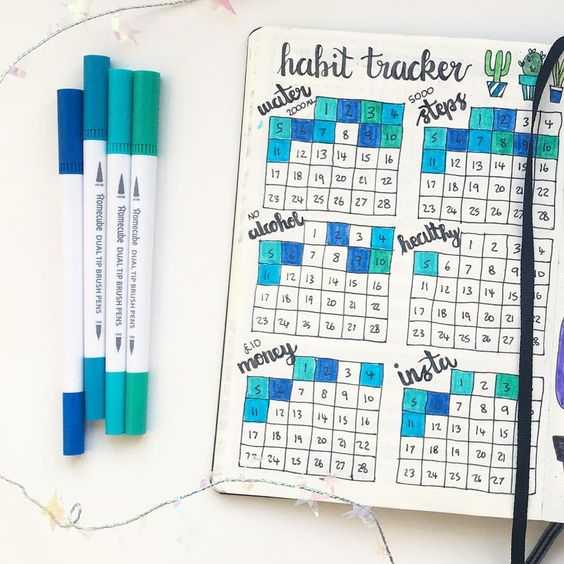 Homecube DUAL TIP BRUSH PENS
Homecube DUAL TIP BRUSH PENS
Homecube DUAL TIP BRUSH PENS
habit tracker
water
2000ML
1 2 3 4
5 6 7 8 9 10
11 12 13 14 15 16
17 18 19 20 21 22
23 24 25 26 27 28
5000
steps
1 2 3 4
5 6 7 8 9 10
11 12 13 14 15 16
17 18 19 20 21 22
23 24 25 26 27 28
NO
alcohol
1 2 3 4
5 6 7 8 9 10
11 12 13 14 15 16
17 18 19 20 21 22
23 24 25 26 27 28
healthy
1 2 3 4
5 6 7 8 9 10
11 12 13 14 15 16
17 18 19 20 21 22
23 24 25 26 27 28
£10
money
1 2 3 4
5 6 7 8 9 10
11 12 13 14 15 16
17 18 19 20 21 22
23 24 25 26 27 28
insta
1 2 3
5 6 7 8 9
11 12 13 14 15
17 18 19 20 21
23 24 25 26 27